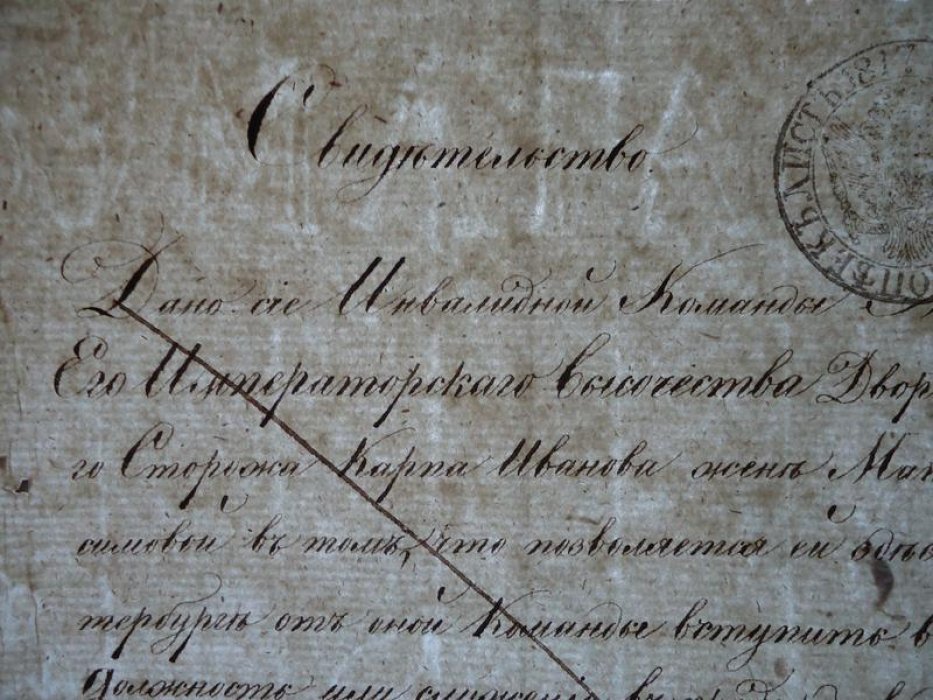 Свидѣтельство.
Дано сіе Инвалидной Команды
Его Императорскаго Высочества Двор
го Сторожа Карпа Иванова женѣ Мак
симовой въ томъ, что позволяется ей здѣс
тербургѣ отъ оной Команды вступить в
должность или служеніе